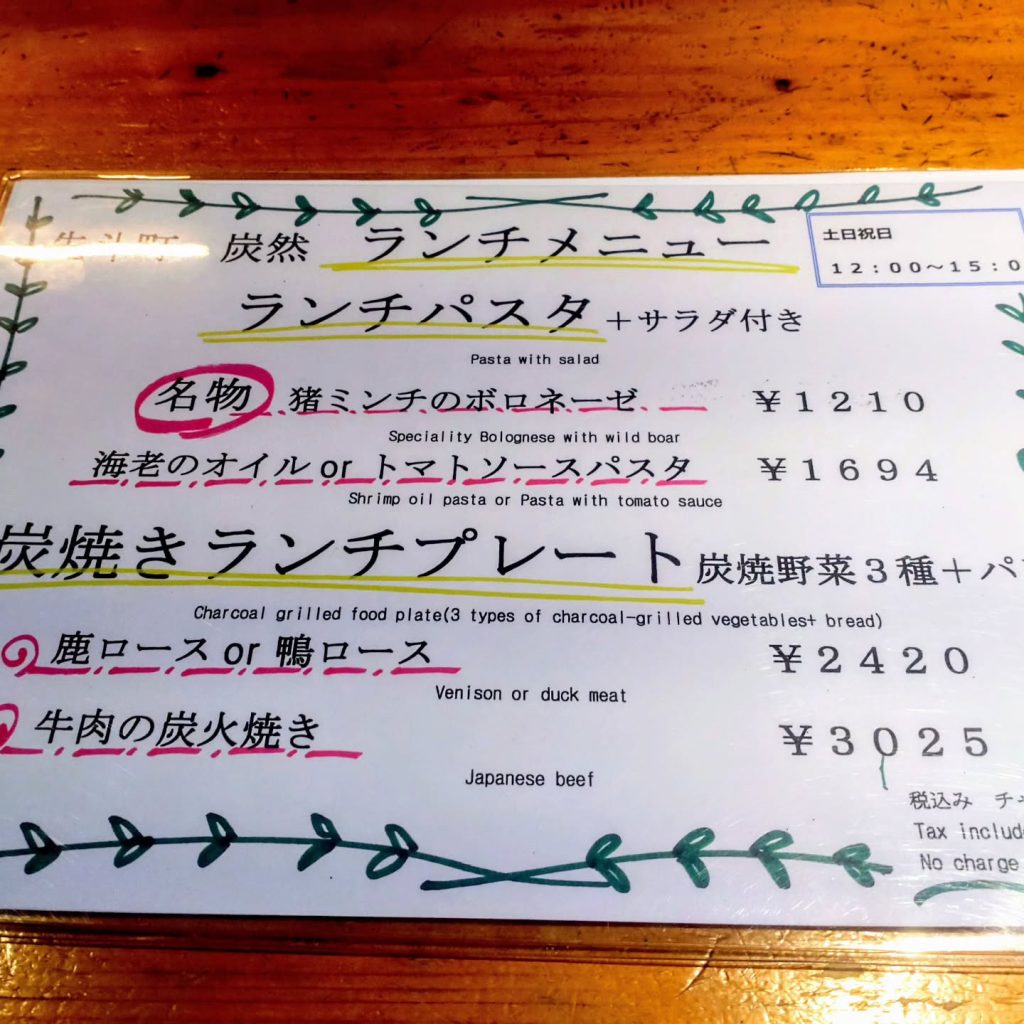 先斗町 炭然 ランチメニュー
土日祝日
12:00～15:0
ランチパスタ +サラダ付き
Pasta with salad
名物 猪ミンチのボロネーゼ ¥1210
Speciality Bolognese with wild boar
海老のオイル or トマトソースパスタ ¥1694
Shrimp oil pasta or Pasta with tomato sauce
炭焼きランチプレート 炭焼野菜3種+パ
Charcoal grilled food plate(3 types of charcoal-grilled vegetables+ bread)
鹿ロース or 鴨ロース ¥2420
Venison or duck meat
牛肉の炭火焼き ¥3025
Japanese beef
税込み チャ
Tax includ
No charge